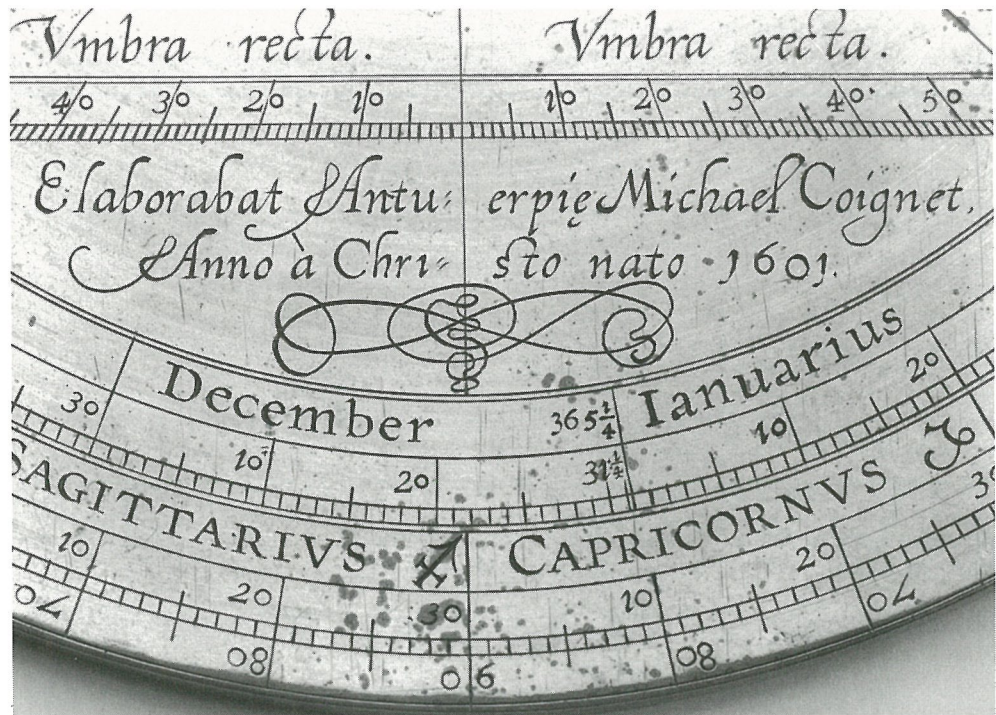 Vmbra recta. Vmbra recta.
40 30 20 10 10 20 30 40 50
Elaborabat Antu: erpię Michael Coignet.
Anno à Chri: sto nato 1601.
December 365¼ Ianuarius
30 10 20 31¼ 10 20
SAGITTARIVS CAPRICORNVS
10 20 30 10 20 30
70 80 90 80 70